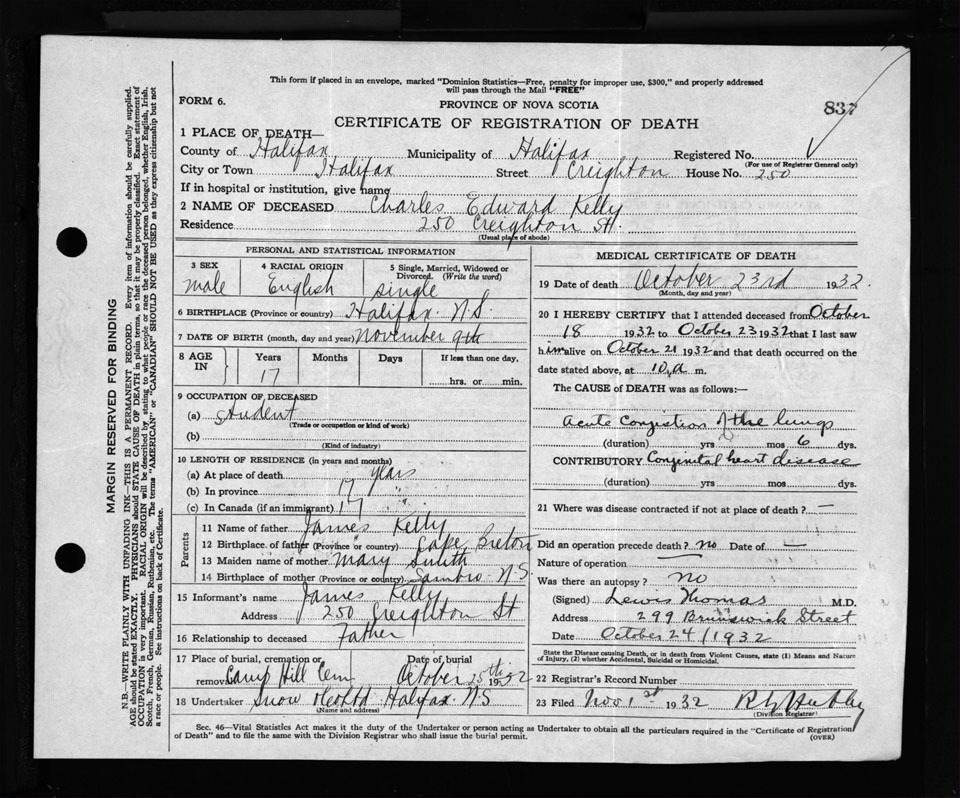 This form if placed in an envelope, marked "Dominion Statistics—Free, penalty for improper use, $300," and properly addressed
will pass through the Mail "FREE"
FORM 6.
PROVINCE OF NOVA SCOTIA
837
CERTIFICATE OF REGISTRATION OF DEATH
1 PLACE OF DEATH—
County of Halifax Municipality of Halifax Registered No.
(For use of Registrar General only)
City or Town Halifax Street Creighton House No. 250
If in hospital or institution, give name
2 NAME OF DECEASED Charles Edward Kelly
Residence 250 Creighton St.
(Usual place of abode)
PERSONAL AND STATISTICAL INFORMATION
3 SEX 4 RACIAL ORIGIN 5 Single, Married, Widowed or
Divorced. (Write the word)
male English single
6 BIRTHPLACE (Province or country) Halifax. N.S.
7 DATE OF BIRTH (month, day and year) November 9th
8 AGE IN Years Months Days If less than one day,
17 hrs. or min.
9 OCCUPATION OF DECEASED
(a) student
(Trade or occupation or kind of work)
(b)
(Kind of industry)
10 LENGTH OF RESIDENCE (in years and months)
(a) At place of death years
(b) In province 17 "
(c) In Canada (if an immigrant) 17 "
Parents
11 Name of father James Kelly
12 Birthplace of father (Province or country) Cape Breton
13 Maiden name of mother Mary
14 Birthplace of mother (Province or country) Sambro N.S.
15 Informant's name James Kelly
Address 250 Creighton St
16 Relationship to deceased Father
17 Place of burial, cremation or Date of burial
removal Camp Hill Cem October 25th 1932
18 Undertaker Snow Halifax. N.S
(Name and address)
MEDICAL CERTIFICATE OF DEATH
19 Date of death October 23rd 1932.
(Month, day and year)
20 I HEREBY CERTIFY that I attended deceased from October
18 1932 to October 23 1932 that I last saw
him alive on October 21 1932 and that death occurred on the
date stated above, at 10 a m.
The CAUSE of DEATH was as follows:—
Acute Congestion of the lungs
(duration) yrs mos 6 dys.
CONTRIBUTORY Congenital heart disease
(duration) yrs. mos. dys.
21 Where was disease contracted if not at place of death? —
Did an operation precede death? no Date of —
Nature of operation —
Was there an autopsy? no
(Signed) Lewis Thomas M.D.
Address 299 Brunswick Street
Date October 24/1932
State the Disease causing Death, or in death from Violent Causes, state (1) Means and
Nature of Injury, (2) whether Accidental, Suicidal or Homicidal.
22 Registrar's Record Number
23 Filed Nov 1st 1932
(Division Registrar)
Sec. 46—Vital Statistics Act makes it the duty of the Undertaker or person acting as Undertaker to obtain all the particulars required in the "Certificate of Registration
of Death" and to file the same with the Division Registrar who shall issue the burial permit.
(OVER)
MARGIN RESERVED FOR BINDING
N.B.—WRITE PLAINLY WITH UNFADING INK—THIS IS A PERMANENT RECORD. Every item of information should be carefully supplied.
AGE should be stated EXACTLY. PHYSICIANS should STATE CAUSE OF DEATH in plain terms, so that it may be properly classified. Exact statement of
OCCUPATION is very important. RACIAL ORIGIN will be described by stating to what people or race the deceased person belonged, whether English, Irish,
Scotch, French, German, Russian, Ruthenian, etc. The terms "AMERICAN" or "CANADIAN" SHOULD NOT BE USED as they express citizenship but not
a race or people. See instructions on back of Certificate.